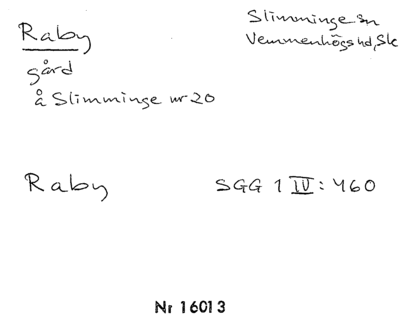 Raby
gård
å Slimminge nr 20
Slimminge sn
Vemmenhögs hd, Sk
Raby
SGG 1 IV: 460
Nr 16013